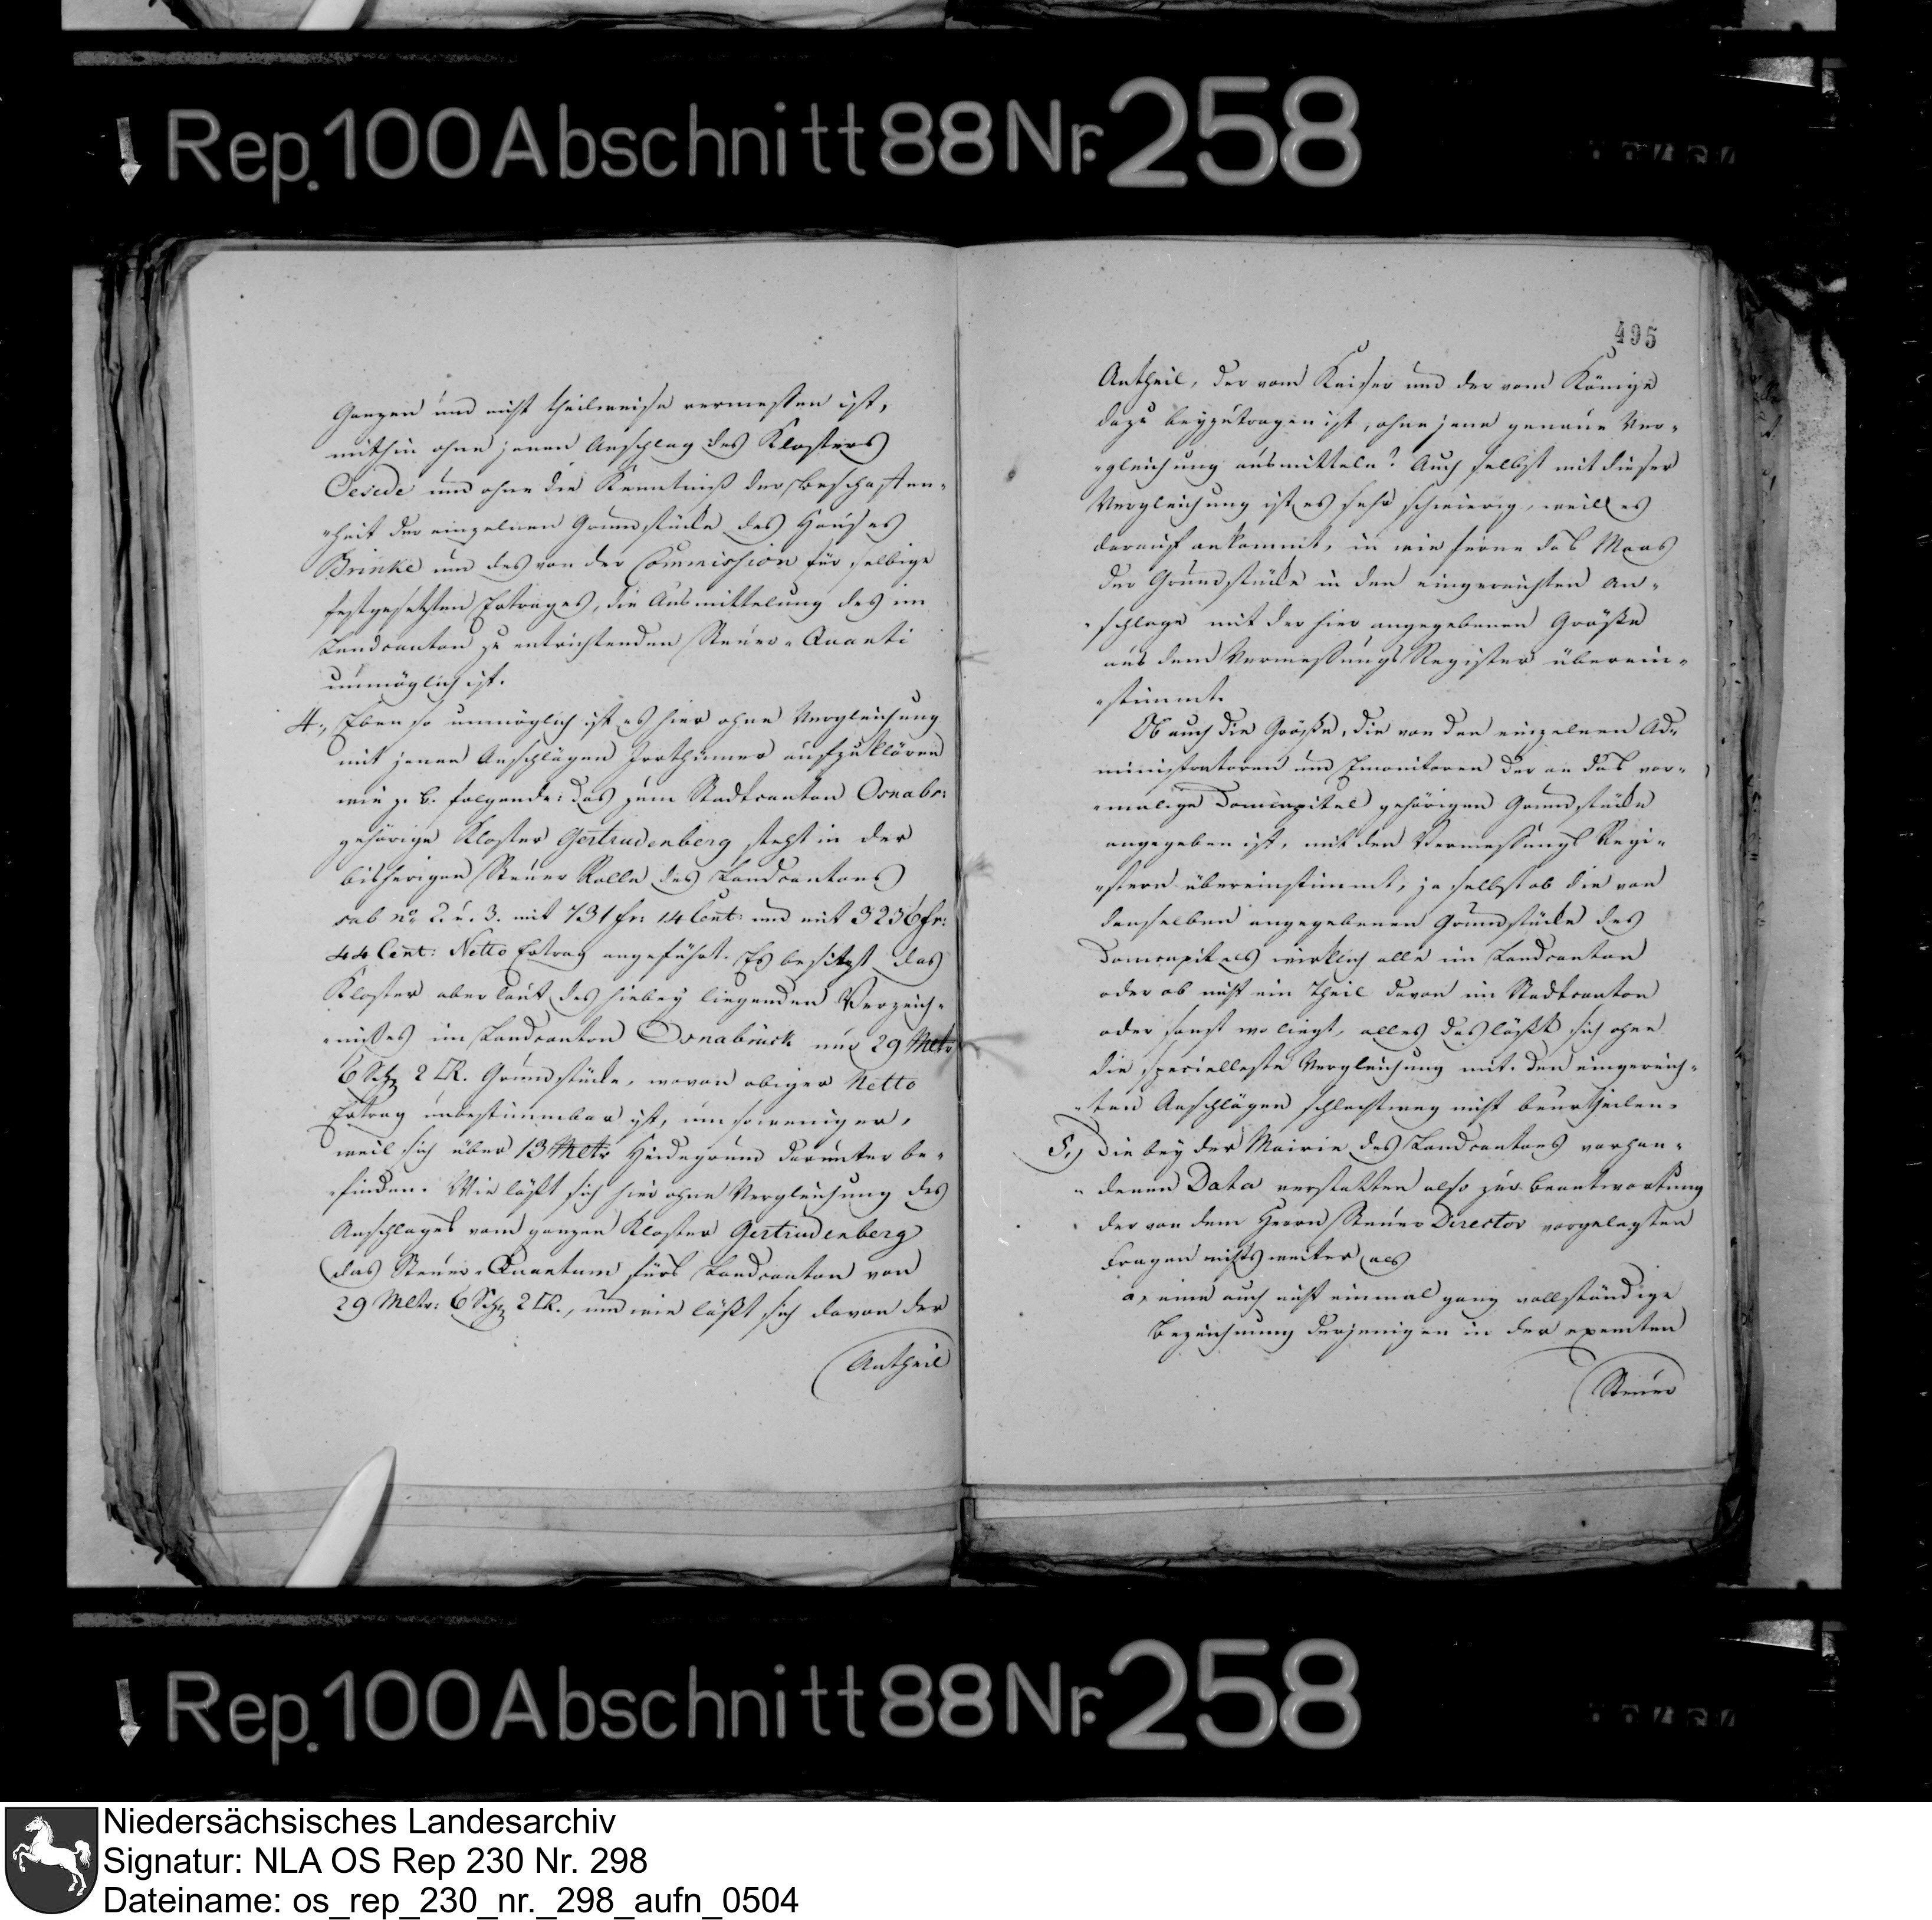 Rep. 100 Abschnitt 88 Nr. 258
Ganzen und nicht theilweise vermessen ist,
mithin ohne jenen Anschlag des Klosters
Oesede und ohne die Kenntniß der Beschaffen-
-heit der einzelnen Grundstücke des Hauses
Brinke und des von der Commission für selbige
festgesetzten Ertrages, die Ausmittelung des im
Landcanton zu entrichtenden Steuer-Quanti
unmöglich ist.
4., Eben so unmöglich ist es hier ohne Vergleichung
mit jenen Anschlägen Irrthümer aufzuklären
wie z. B. folgende: das zum Stadtcanton Osnabr:
gehörige Kloster Gertrudenberg steht in der
bisherigen Steuer Rolle des Landcantons
sub No 2. u. 3. mit 731 fr: 14 Cent: und mit 3256 fr:
44 Cent: Netto Ertrag angeführt. Es besitzt das
Kloster aber laut des hiebey liegenden Verzeich-
-nißes im Landcanton Osnabrück nur 29 Mltr
6 Schfl 2 R. Grundstücke, wovon obiger Netto
Ertrag unbestimmbar ist, um soweniger,
weil sich über 13 Mltr Heidegrund darunter be-
-finden. Wie läßt sich hier ohne Vergleichung des
Anschlages vom ganzen Kloster Gertrudenberg
das Steuer-Quantum fürs Landcanton von
29 Mltr: 6 Schfl 2 R., und wie läßt sich davon der
Antheil
495
Antheil, der vom Kaiser und der vom Könige
dazu beyzutragen ist, ohne jene genaue Ver-
-gleichung ausmitteln? Auch selbst mit dieser
Vergleichung ist es sehr schwierig, weil es
darauf ankommt, in wie ferne das Maas
der Grundstücke in den eingereichten An-
-schlage mit der hier angegebenen Größe
aus dem Vermessungs Register überein-
-stimmt.
Ob auch die Größe, die von den einzelnen Ad-
ministratoren und Emonitoren der an das vor-
-malige Domcapitel gehörigen Grundstücke
angegeben ist, mit den Vermessungs Regi-
-stern übereinstimmt, ja selbst ob die von
denselben angegebenen Grundstücke des
Domcapitels wirklich alle im Landcanton
oder ob nicht ein Theil davon im Stadtcanton
oder sonst wo liegt, alles das läßt sich ohne
die specielleste Vergleichung mit den eingereich-
-ten Anschlägen schlechtweg nicht beurtheilen.
5.) Die bey der Mairie des Landcantons vorhan-
-denen Data verstatten also zur Beantwortung
der von dem Herrn Steuer Director vorgelegten
Fragen nichts weiter als
a, eine auch nicht einmal ganz vollständige
Bezeichnung derjenigen in der exemten
Steuer
Rep. 100 Abschnitt 88 Nr. 258
Niedersächsisches Landesarchiv
Signatur: NLA OS Rep 230 Nr. 298
Dateiname: os_rep_230_nr._298_aufn_0504